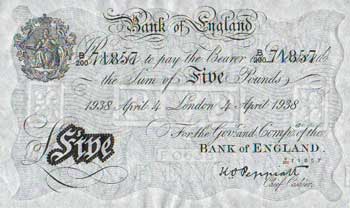 Bank of England
B/200 71857 B/200 71857
to pay the Bearer on
the Sum of Five Pounds
1938 April 4 London 4 April 1938
For the Gov: and Comp:a of the
BANK of ENGLAND.
Five
K O Peppiatt
Chief Cashier